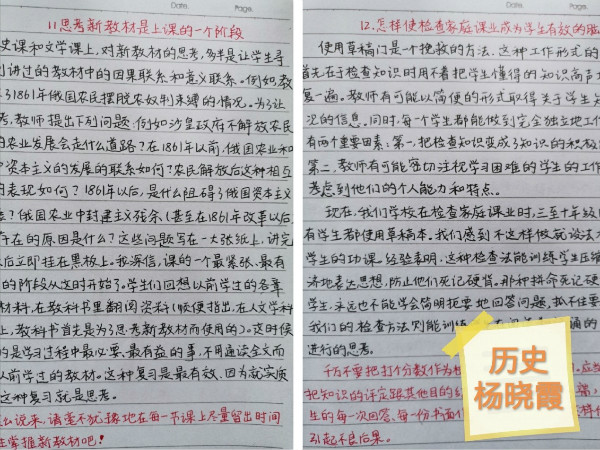 Date. Page.
11.思考新教材是上课的一个阶段
史课和文学课上,对新教材的思考,多半是让学生寻
讲过的教材中的因果联系和意义联系。例如,教
1861年俄国农民摆脱农奴制束缚的情况。为了让
考,教师提出下列问题,例如沙皇政府不解放农民
农业发展会走什么道路?在1861年以前,俄国农业和
资本主义的发展的联系如何?农民解放后这种相互
表现如何?1861年以后,是什么阻碍了俄国资本主义
?俄国农业中封建主义残余(甚至在1861年改革以后
存在的原因是什么?这些问题写在一大张纸上,讲完
以后立即挂在黑板上。我深信,课的一个最紧张、最有
的阶段从这时开始了。学生们回想以前学生的各章
材料,在教科书里翻阅资料(顺便指出,在人文学科
上,教科书首先是为了思考新教材而使用的)。这时候
的是学习过程中最必要、最有益的事,不用通读全文而
以前学过的教材。这种复习是最有效、因为就实质
这种复习就是思考。
么说来,请毫不犹豫地在每一节课上尽量留出时间
生掌握新教材吧!
Date. Page.
12.怎样使检查家庭课业成为学生有效的脑
使用草稿门是个挽救的方法。这种工作形式的
首先在于检查知识时用不着把学生懂得的知识高声地
复一遍。教师有可能以简便的形式取得关于学生知
况的信息。同时,每个学生都能做到完全独立地工作
有两个重要因素:第一,把检查知识变成了知识的积极
第二,教师有可能密切注视学习困难的学生的工作
考虑到他们的个人能力和特点。
现在,我们学校在检查家庭课业时,三至十年级
有学生都使用草稿本。我们感到不这样做就没法
学生的功课。经验表明,这种检查法能训练学生压缩
济地表达思想,防止他们死记硬背。那种拼命死记硬
学生,永远也不能学会简明扼要地回答问题,抓不住要
我们的检查方法则能训练
进行的思考。
千万不要把打个分数作为
把知识的评定跟其他目的
生的每一次回答、每一份书面
引起不良后果。
历史
杨晓霞